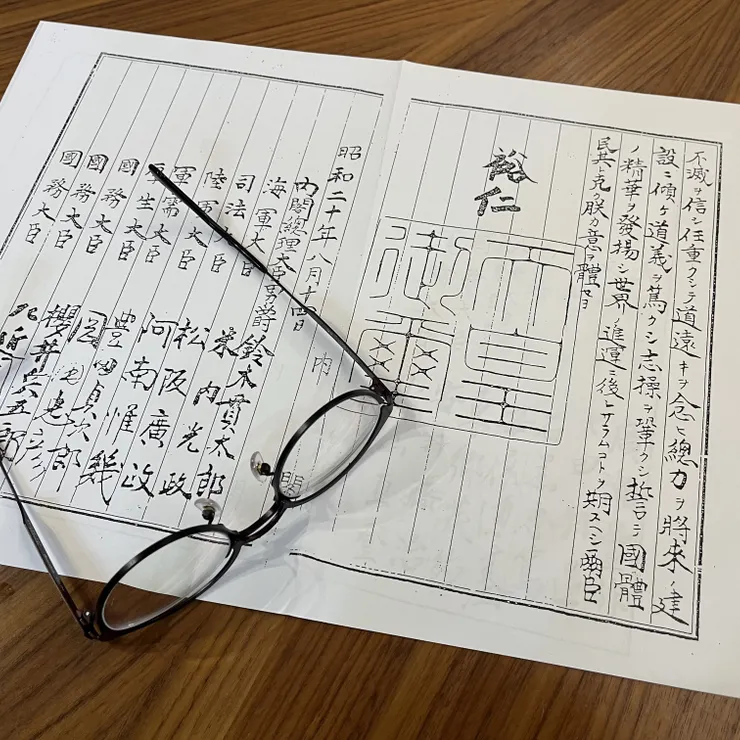 不滅ヲ信シ任重クシテ道遠キヲ念ヒ總力ヲ將來ノ建
設ニ傾ケ道義ヲ篤クシ志操ヲ鞏クシ誓テ國體
ノ精華ヲ發揚シ世界ノ進運ニ後レサラムコトヲ期スヘシ爾臣
民其レ克ク朕カ意ヲ體セヨ
裕仁
天皇
御璽
内閣
昭和二十年八月十四日
内閣總理大臣男爵 鈴木貫太郎
海軍大臣 米内光政
司法大臣 松阪廣政
陸軍大臣 阿南惟幾
軍需大臣 豐田貞次郎
厚生大臣 岡田忠彦
國務大臣 櫻井兵五郎
國務大臣
國務大臣